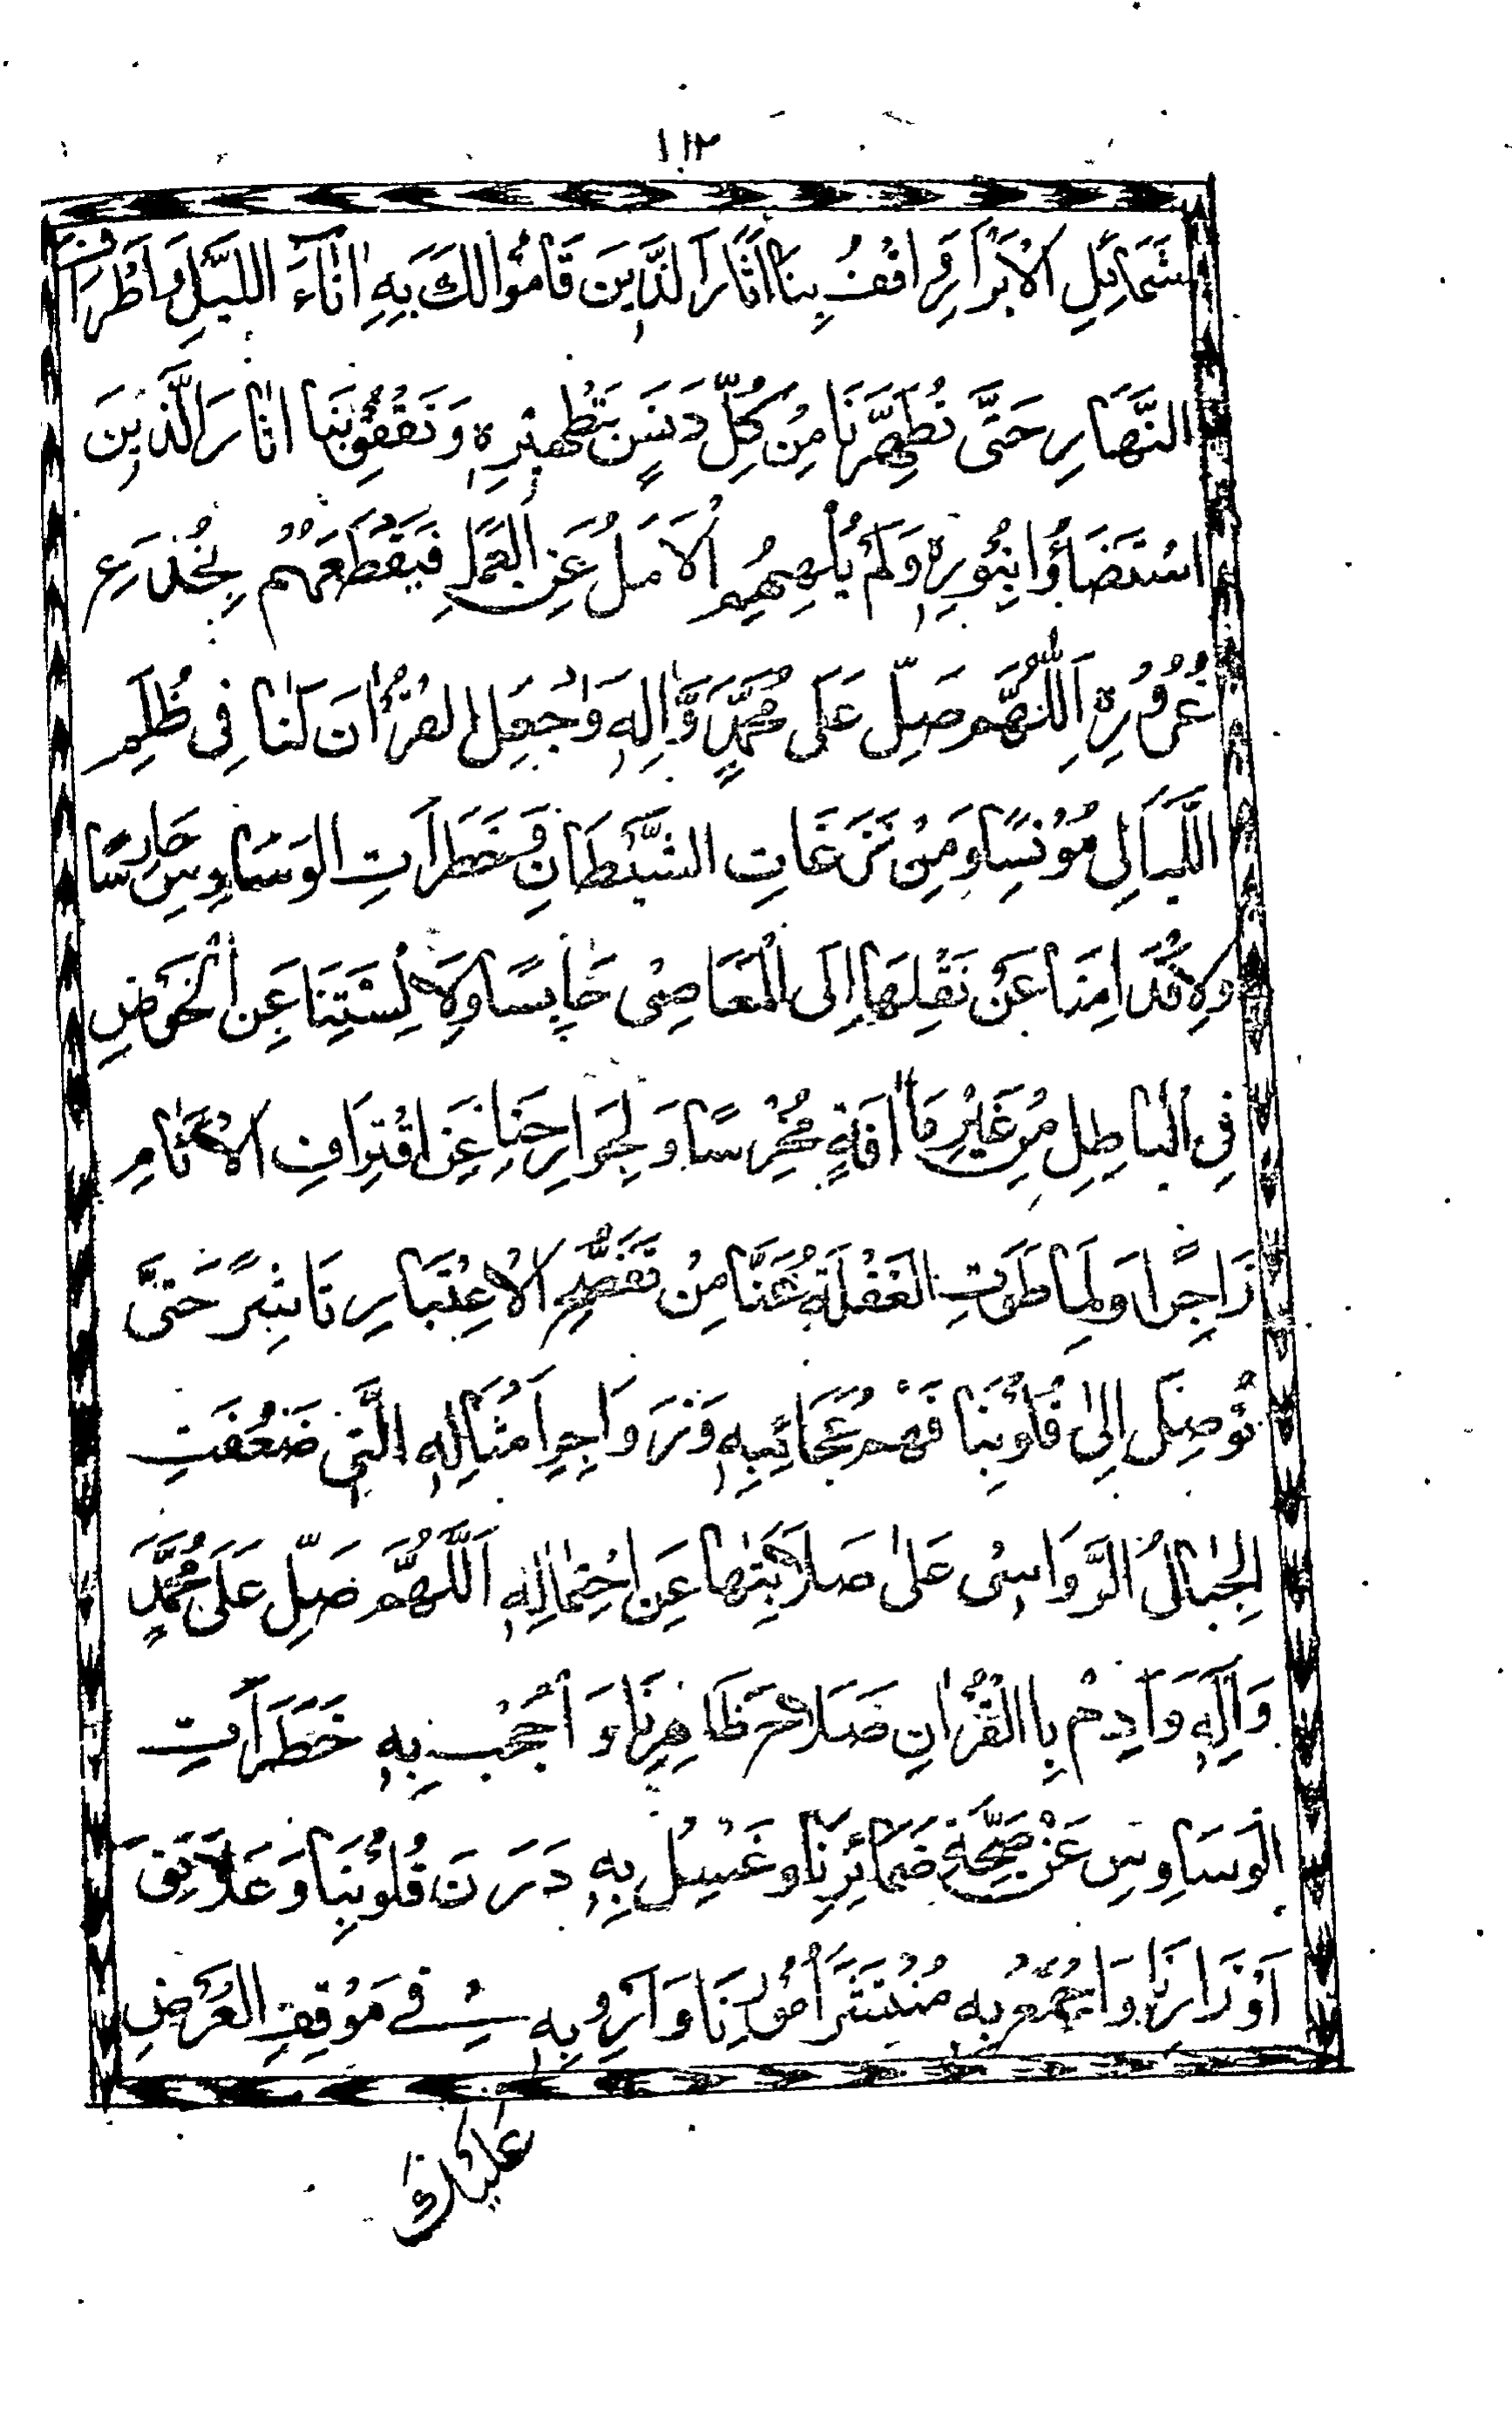 ١١٢
شَمَائِلِ الْاَبْرَارِ وَاقْفُ بِنَا اٰثَارَ الَّذِينَ قَامُوْا لَكَ بِهِ اٰنَاءَ اللَّيْلِ وَاَطْرَافَ
النَّهَارِ حَتّٰى تُطَهِّرَنَا مِنْ كُلِّ دَنَسٍ بِتَطْهِيْرِهٖ وَتَقْفُوَ بِنَا اٰثَارَ الَّذِيْنَ
اسْتَضَاؤُا بِنُوْرِهٖ وَلَمْ يُلْهِهِمُ الْاَمَلُ عَنِ الْعَمَلِ فَيَقْطَعَهُمْ بِخُدَعِ
غُرُوْرِهٖ اَللّٰهُمَّ صَلِّ عَلَى مُحَمَّدٍ وَّاٰلِهٖ وَاجْعَلِ الْقُرْاٰنَ لَنَا فِى ظُلَمِ
اللَّيَالِى مُوْنِسًا وَمِنْ نَزَغَاتِ الشَّيْطَانِ وَخَطَرَاتِ الْوَسَاوِسِ حَارِسًا
وَلِاَقْدَامِنَا عَنْ نَقْلِهَا اِلَى الْمَعَاصِىْ حَابِسًا وَلِاَلْسِنَتِنَا عَنِ الْخَوْضِ
فِى الْبَاطِلِ مِنْ غَيْرِ مَا اٰفَةٍ مُخْرِسًا وَلِجَوَارِحِنَا عَنِ اقْتِرَافِ الْاٰثَامِ
زَاجِرًا وَلِمَا طَوَتِ الْغَفْلَةُ عَنَّا مِنْ تَصَفُّحِ الْاِعْتِبَارِ نَاشِرًا حَتّٰى
تُوْصِلَ اِلٰى قُلُوْبِنَا فَهْمَ عَجَائِبِهٖ وَزَوَاجِرَ اَمْثَالِهِ الَّتِى ضَعُفَتِ
الْجِبَالُ الرَّوَاسِىْ عَلٰى صَلَابَتِهَا عَنِ احْتِمَالِهٖ اَللّٰهُمَّ صَلِّ عَلَى مُحَمَّدٍ
وَاٰلِهٖ وَاَدِمْ بِاالْقُرْاٰنِ صَلَاحَ ظَاهِرِنَا وَ احْجُبْ بِهٖ خَطَرَاتِ
الْوَسَاوِسِ عَنْ صِحَّةِ ضَمَائِرِنَا وغْسِلْ بِهٖ دَرَنَ قُلُوْبِنَا وَعَلَائِقَ
اَوْزَارِنَا وَاجْمَعْ بِهٖ مُنْتَشَرَ اُمُوْرِنَا وَاَرْوِ بِهٖ فِى مَوْقِفِ الْعَرْضِ
عَلَيْكَ